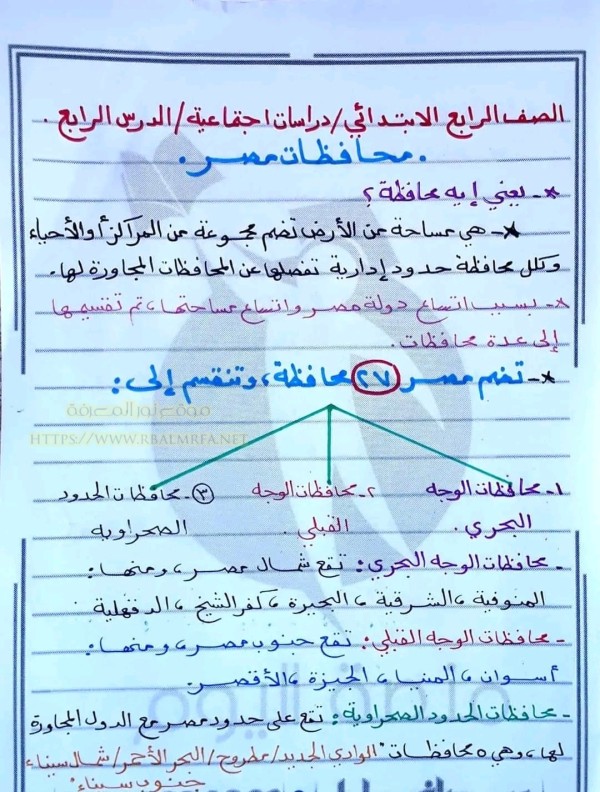 الصف الرابع الابتدائي/دراسات اجتماعية/الدرس الرابع.
.محافظات مصر.
*- يعني إيه محافظة؟
*- هي مساحة من الأرض تضم مجموعة من المراكز أو الأحياء
وكل محافظة حدود إدارية تفصلها عن المحافظات المجاورة لها.
*- بسبب اتساع دولة مصر واتساع مساحتها، تم تقسيمها
إلى عدة محافظات.
*- تضم مصر ٢٧ محافظة، وتنقسم إلى:
موقع نور المعرفة
HTTPS://WWW.RBALMRFA.NET
١- محافظات الوجه ٢- محافظات الوجه ٣- محافظات الحدود
البحري. القبلي. الصحراوية
- محافظات الوجه البحري: تقع شمال مصر، ومنها:
المنوفية، الشرقية، البحيرة، كفر الشيخ، الدقهلية
- محافظات الوجه القبلي: تقع جنوب مصر، ومنها:
أسوان، المنيا، الجيزة، الأقصر.
- محافظات الحدود الصحراوية: تقع على حدود مصر مع الدول المجاورة
لها، وهي ٥ محافظات "الوادي الجديد/مطروح/البحر الأحمر/شمال سيناء
جنوب سيناء"